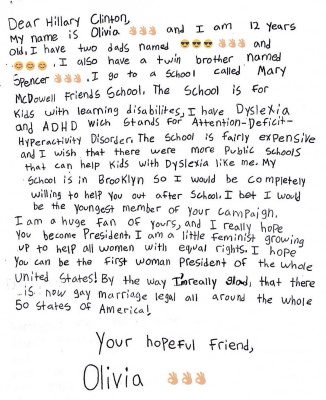 Dear Hillary Clinton,
My name is Olivia 👌🏼👌🏼👌🏼 and I am 12 years
old. I have two dads named 😎😎😎👌🏼👌🏼👌🏼 and
😊😊😊. I also have a twin brother named
Spencer 👌🏼👌🏼👌🏼. I go to a School called Mary
McDowell Friends School. The School is For
Kids with learning disabilites, I have Dyslexia
and ADHD wich Stands For Attention-Deficit-
Hyperactivity Disorder. The School is fairly expensive
and I wish that there were more Public schools
that can help Kids with Dyslexia like me. My
School is in Brooklyn So I would be completely
willing to help you out after School. I bet I would
be the youngest member of your campaign.
I am a huge fan of yours, and I really hope
you become President. I am a little feminist growing
up to help all women with equal rights. I hope
you can be the first woman President of the whole
United States! By the way I'm really glad, that there
is now gay marriage legal all around the whole
50 states of America!
Your hopeful Friend,
Olivia 👌🏼👌🏼👌🏼